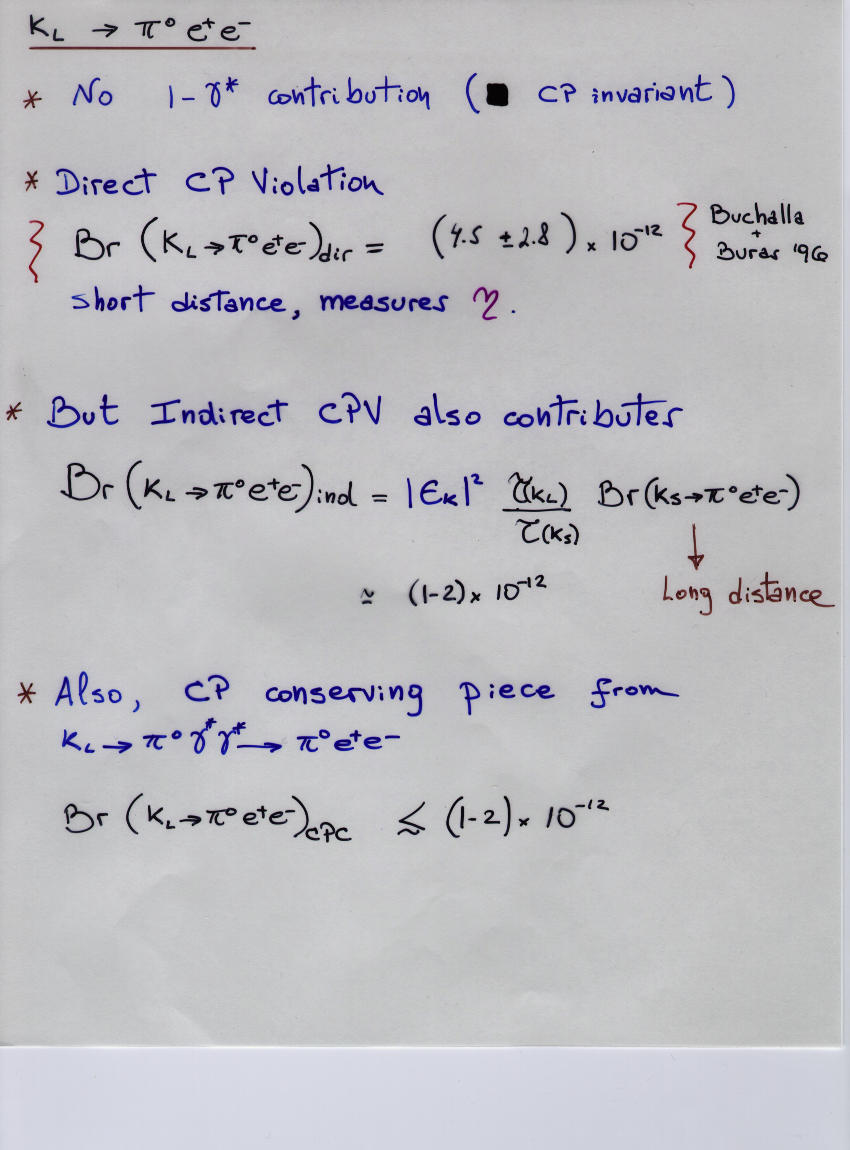 K_L → π⁰ e⁺e⁻
* No 1-γ* contribution ( CP invariant )
* Direct CP Violation
Br (K_L→π⁰e⁺e⁻)_dir = (4.5 ± 2.8) × 10⁻¹² Buchalla + Buras '96
short distance, measures η.
* But Indirect CPV also contributes
Br (K_L→π⁰e⁺e⁻)_ind = |ϵ_K|² τ(K_L)/τ(K_S) Br(K_S→π⁰e⁺e⁻)
≃ (1-2) × 10⁻¹² ↓ Long distance
* Also, CP conserving piece from
K_L → π⁰ γ*γ* → π⁰e⁺e⁻
Br (K_L→π⁰e⁺e⁻)_CPC ≲ (1-2) × 10⁻¹²